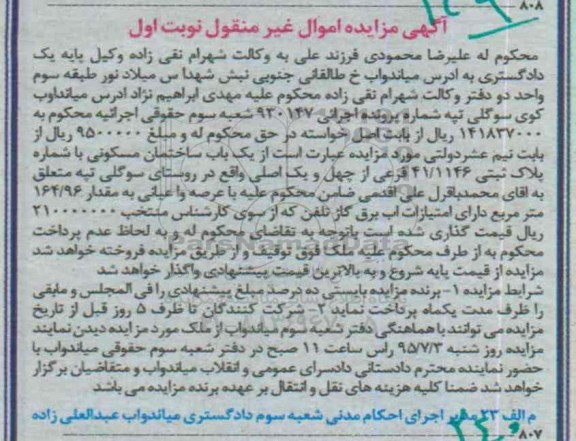 ۸۰۸
آگهی مزایده اموال غیر منقول نوبت اول
محکوم له علیرضا محمودی فرزند علی به وکالت شهرام نقی زاده وکیل پایه یک
دادگستری به ادرس میاندواب خ طالقانی جنوبی نبش شهدا س میلاد نور طبقه سوم
واحد دو دفتر وکالت شهرام نقی زاده محکوم علیه مهدی ابراهیم نژاد ادرس میانداوب
کوی سوگلی تپه شماره پرونده اجرائی ۹۳۰۱۴۷ شعبه سوم حقوقی اجرائیه محکوم به
۱۴۱۸۳۷۰۰۰ ریال از بابت اصل خواسته در حق محکوم له و مبلغ ۹۵۰۰۰۰۰ ریال از
بابت نیم عشر دولتی مورد مزایده عبارت است از یک باب ساختمان مسکونی با شماره
پلاک ثبتی ۴۱/۱۱۴۶ فرعی از چهل و یک اصلی واقع در روستای سوگلی تپه متعلق
به اقای محمدباقرل علی اقتمی ضامن محکوم علیه با عرصه وا عیانی به مقدار ۱۶۴/۹۶
متر مربع دارای امتیازات اب برق گاز تلفن که از سوی کارشناس منتخب ۲۱۰۰۰۰۰۰۰
ریال قیمت گذاری شده است باتوجه به تقاضای محکوم له و به لحاظ عدم پرداخت
محکوم به از طرف محکوم علیه ملک فوق توقیف و از طریق مزایده فروخته خواهد شد
مزایده از قیمت پایه شروع و به بالاترین قیمت پیشنهادی واگذار خواهد شد
شرایط مزایده ۱- برنده مزایده بایستی ده درصد مبلغ پیشنهادی را فی المجلس و مابقی
را ظرف مدت یکماه پرداخت نماید ۲- شرکت کنندگان تا ظرف ۵ روز قبل از تاریخ
مزایده می توانند با هماهنگی دفتر شعبه سوم میاندواب از ملک مورد مزایده دیدن نمایند
مزایده روز شنبه ۹۵/۷/۳ راس ساعت ۱۱ صبح در دفتر شعبه سوم حقوقی میاندواب با
حضور نماینده محترم دادستانی دادسرای عمومی و انقلاب میاندواب و متقاضیان برگزار
خواهد شد ضمنا کلیه هزینه های نقل و انتقال بر عهده برنده مزایده می باشد
م الف ۲۳ مدیر اجرای احکام مدنی شعبه سوم دادگستری میاندواب عبدالعلی زاده
۸۰۷